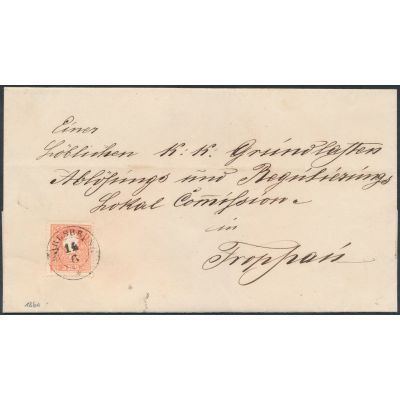 Einer
Löblichen K: K: Grundlasten
Ablösungs und Regulierungs
Lokal Com̅ission
in
Troppau
14
6
1860